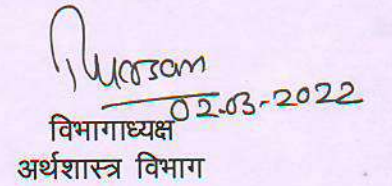 02-03-2022
विभागाध्यक्ष
अर्थशास्त्र विभाग